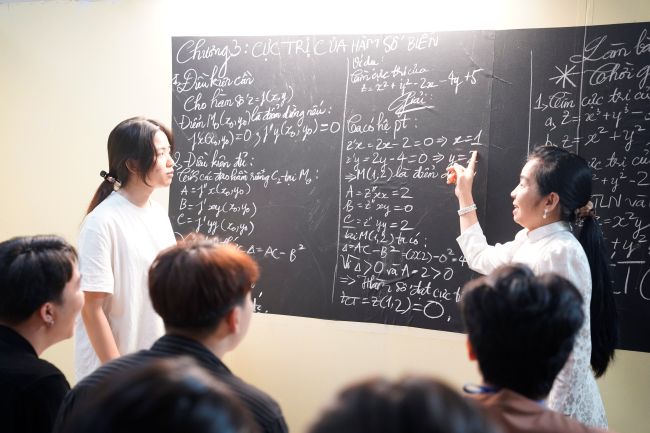 Chương 3: CỰC TRỊ CỦA HÀM SỐ BIẾN
1, Điều kiện cần
Cho hàm số z = f(x,y)
Điểm M₀(x₀,y₀) là điểm dừng nếu:
f'x(x₀,y₀) = 0; f'y(x₀,y₀) = 0
2, Điều kiện đủ:
các đạo hàm riêng C₂ tại M₀
A = f''x(x₀,y₀)
B = f''xy(x₀,y₀)
C = f''yy(x₀,y₀)
Δ = AC - B²
Ví dụ:
Tìm cực trị của
z = x² + y² - 2x - 4y + 5
Giải
Ta có hệ pt:
z'x = 2x - 2 = 0 => x = 1
z'y = 2y - 4 = 0 => y =
=> M(1,2) là điểm
A = z''xx = 2
B = z''xy = 0
C = z''yy = 2
Tại M(1,2) ta có:
Δ = AC - B² = (2x2) - 0² = 4
Vì Δ > 0 và A = 2 > 0
=> Hàm số đạt cực
= z(1,2) = 0.
Làm bà
Thời g
1, Tìm cực trị củ
a, z = x³ + y³ -
z = x² + y²